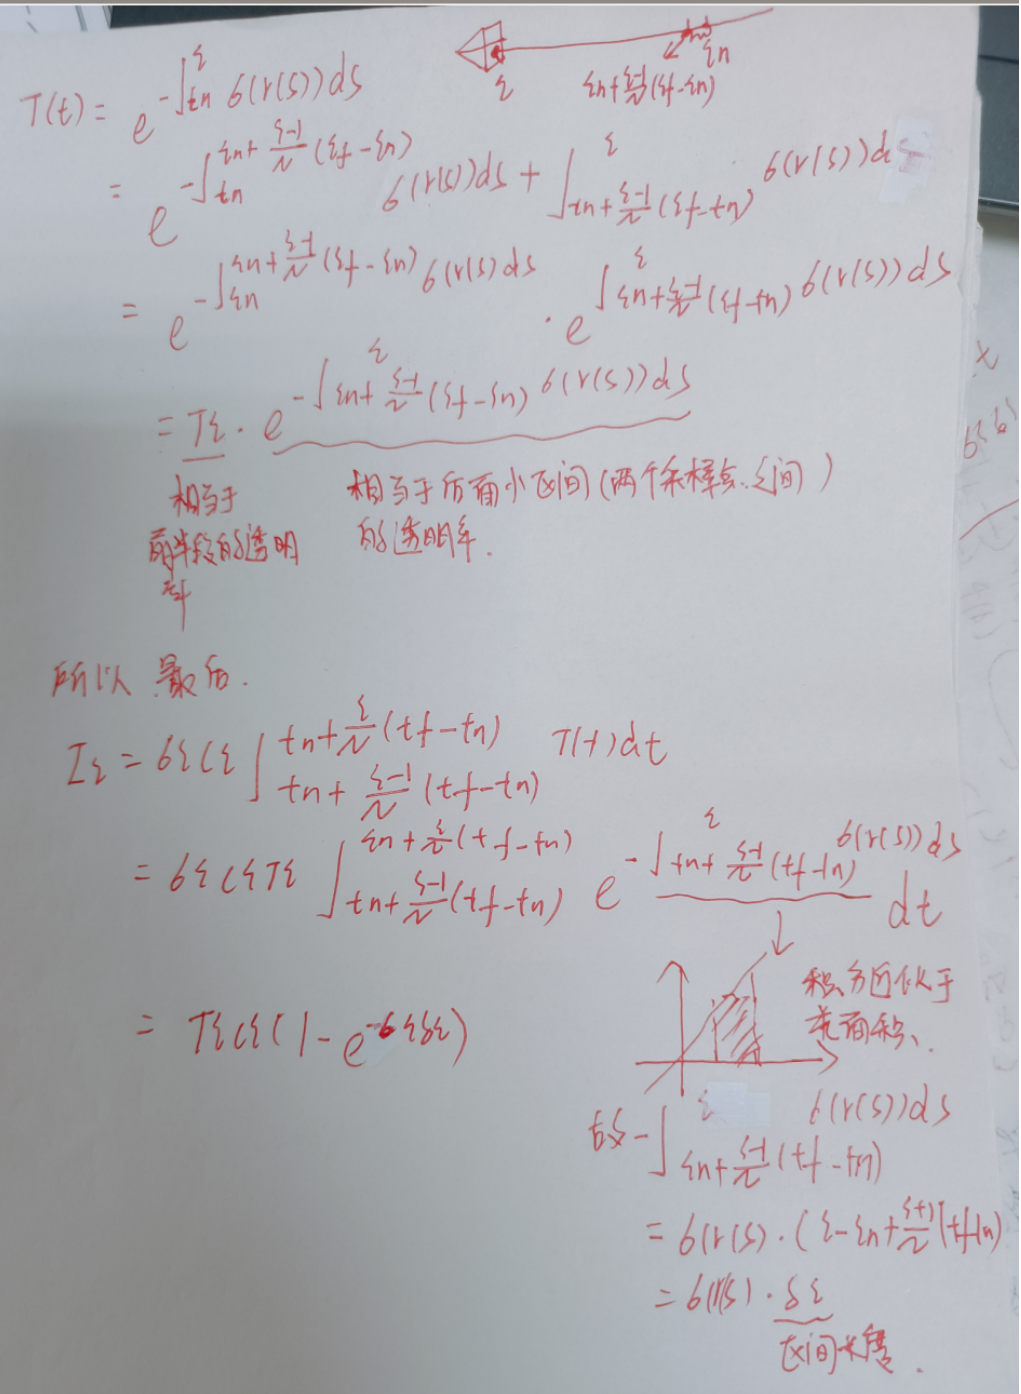 T(t) = e^{-∫_{tn}^{t} σ(r(s))ds}
tn tn+\frac{i-1}{N}(tf-tn)
= e^{-∫_{tn}^{tn+\frac{i-1}{N}(tf-tn)} σ(r(s))ds + ∫_{tn+\frac{i-1}{N}(tf-tn)}^{t} σ(r(s))ds}
= e^{-∫_{tn}^{tn+\frac{i-1}{N}(tf-tn)} σ(r(s)ds} · e^{∫_{tn+\frac{i-1}{N}(tf-tn)}^{t} σ(r(s))ds}
= Ti · e^{-∫_{tn+\frac{i-1}{N}(tf-tn)}^{t} σ(r(s))ds}
相当于
前半段的透明
率
相当于后面小区间(两个采样点之间)
的透明率.
所以 最后.
Ii = σiCi ∫_{tn+\frac{i-1}{N}(tf-tn)}^{tn+\frac{i}{N}(tf-tn)} T(t)dt
= σiCiTi ∫_{tn+\frac{i-1}{N}(tf-tn)}^{tn+\frac{i}{N}(tf-tn)} e^{-∫_{tn+\frac{i-1}{N}(tf-tn)}^{t} σ(r(s))ds} dt
= TiCi(1-e^{-σiδi})
积分近似于
求面积.
故 -∫_{tn+\frac{i-1}{N}(tf-tn)}^{t} σ(r(s))ds
= σ(r(s)·(t-tn+\frac{i+1}{N}(tf-tn)
= σ(r(s)·δi
区间长度.